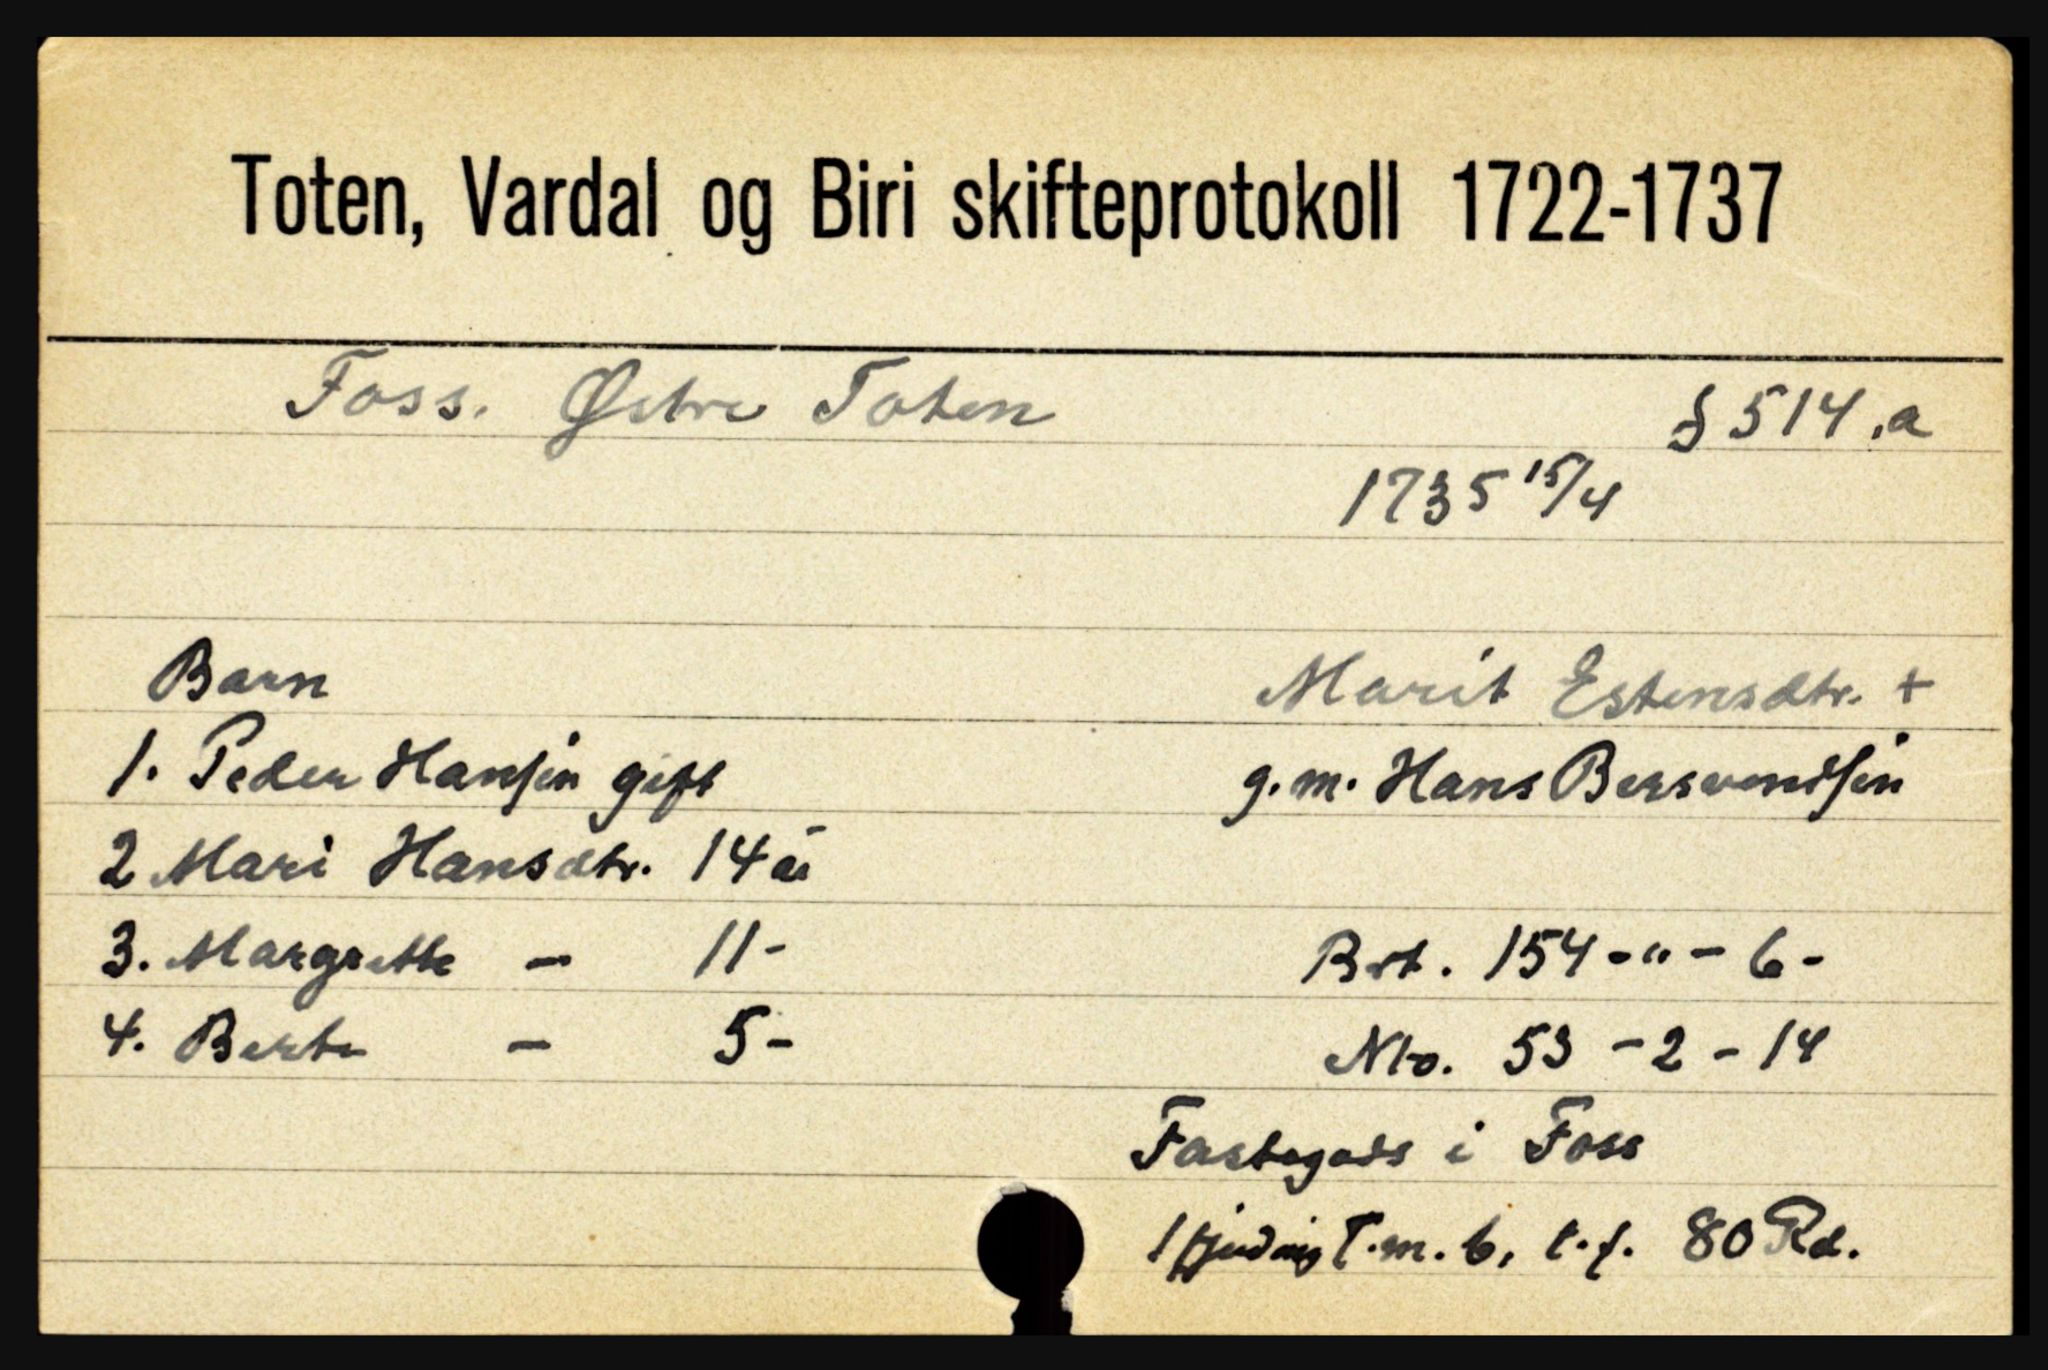 Toten, Vardal og Biri skifteprotokoll 1722-1737
Foss. Østre Toten
§ 514.a
1735 15/4
Barn
Marit Estensdtr. +
1. Peder Hansen gift
g.m. Hans Bersvendsen
2 Mari Hansdtr. 14 år
3. Margrette - 11-
Brt. 154 - " - 6 -
4. Berte - 5-
Nto. 53 - 2 - 14
Fastegods i Foss
1 fjerding T. m. b, t. f. 80 Rd.